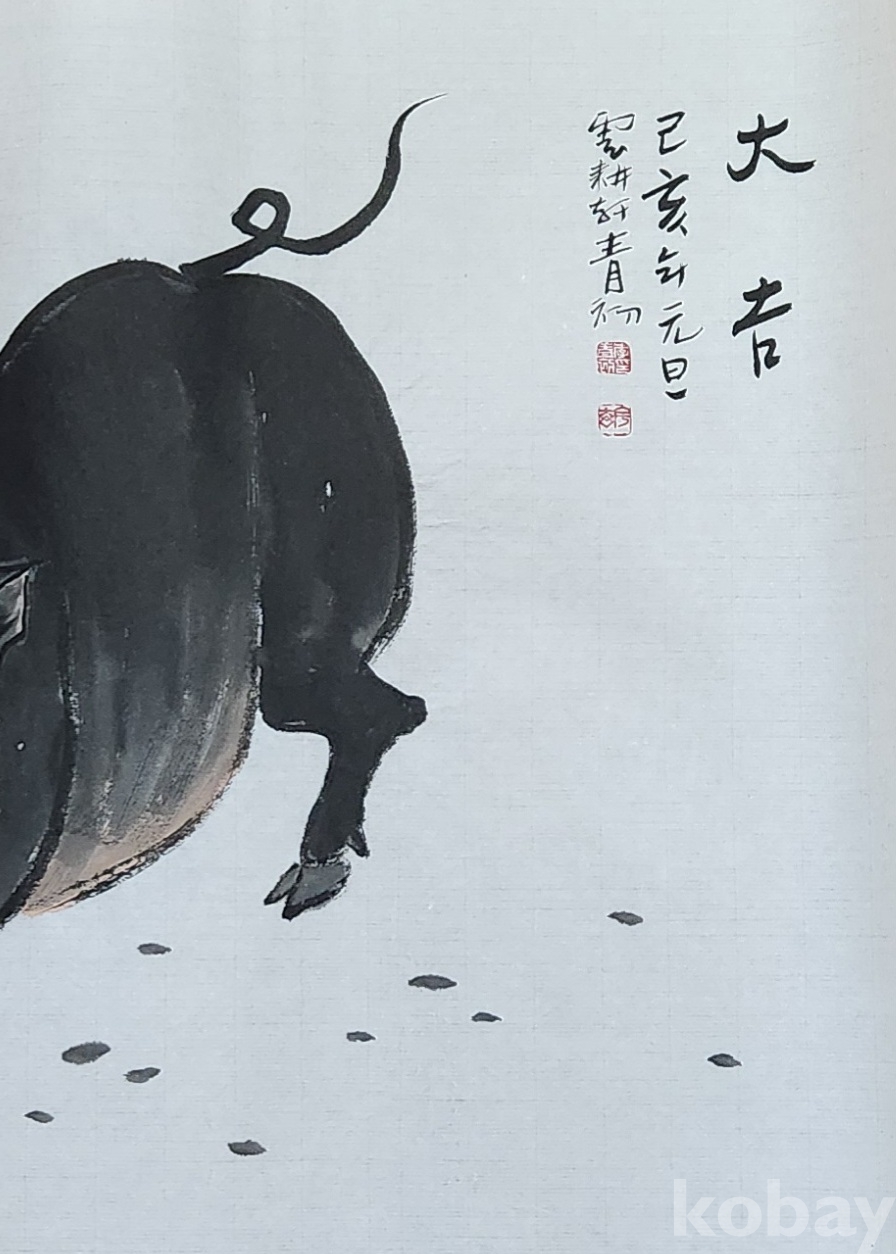 大吉
己亥年元旦
雲耕軒青初
kobay